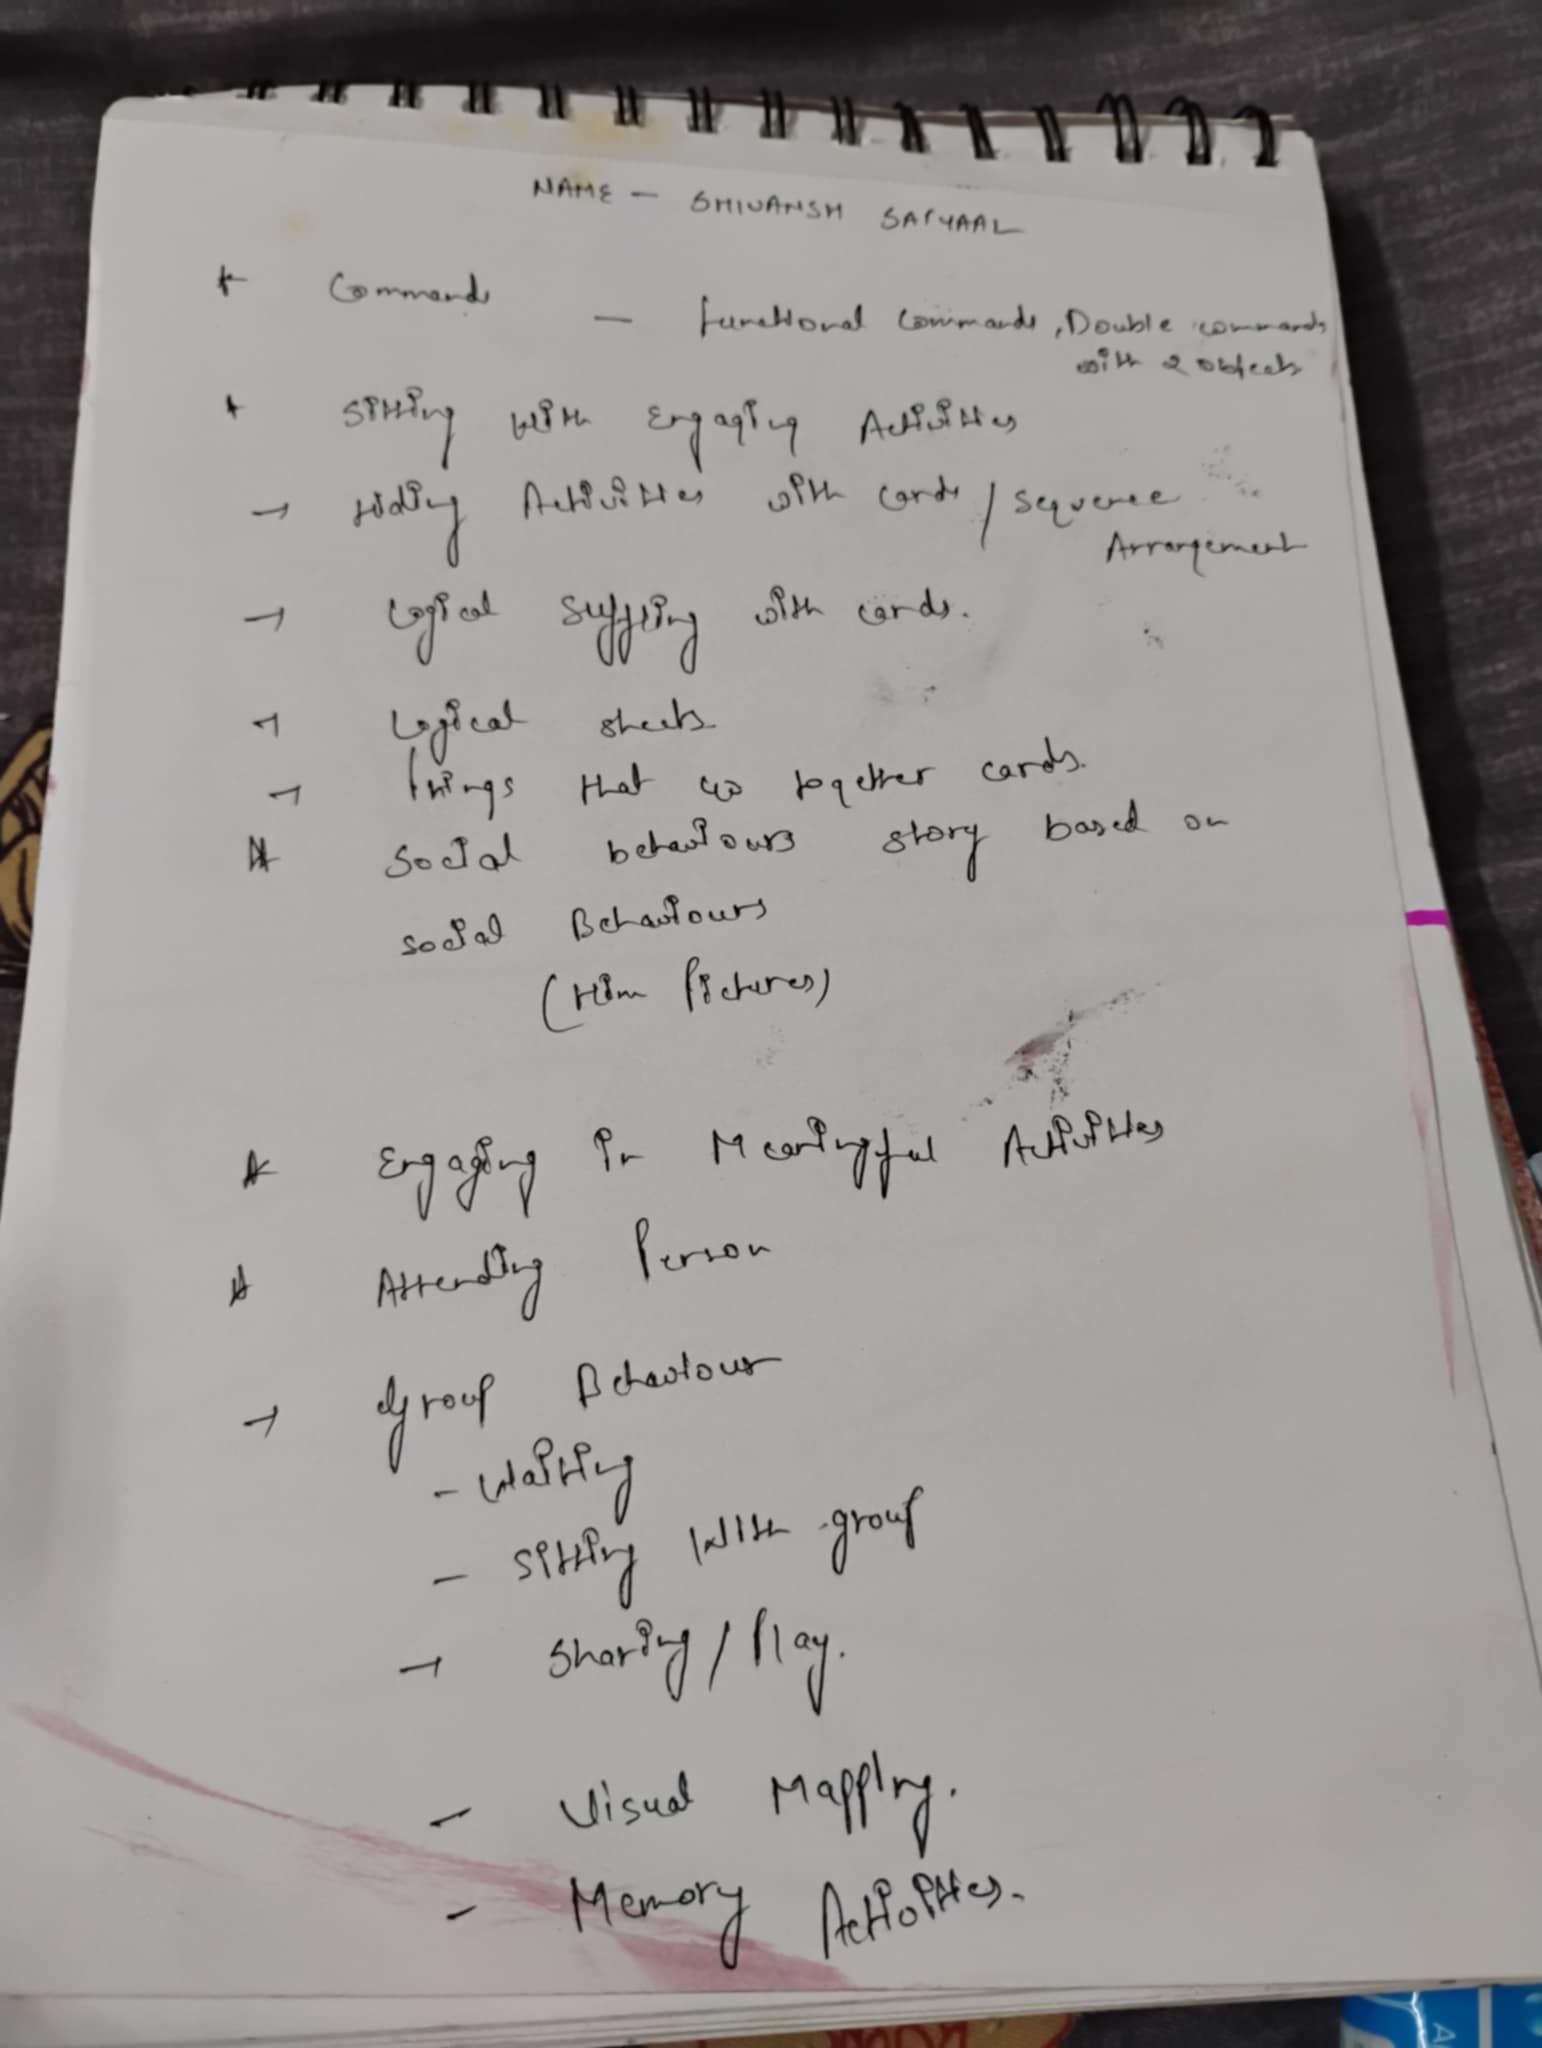 NAME - SHIVANSH SATYAAL
* Commands - functional commands, Double commands
with 2 objects
* Sitting with Engaging Activities
→ Hiding Activities with cards / sequence
Arrangement
→ Logical suffling with cards.
→ Logical sheets
→ things that go together cards.
* Social behaviours story based on
social Behaviours
(Him Pictures)
* Engaging in Meaningful Activities
* Attending Person
→ Group Behaviour
- Waiting
- Sitting With group
→ Sharing / Play.
- Visual Mapping.
- Memory Activities.